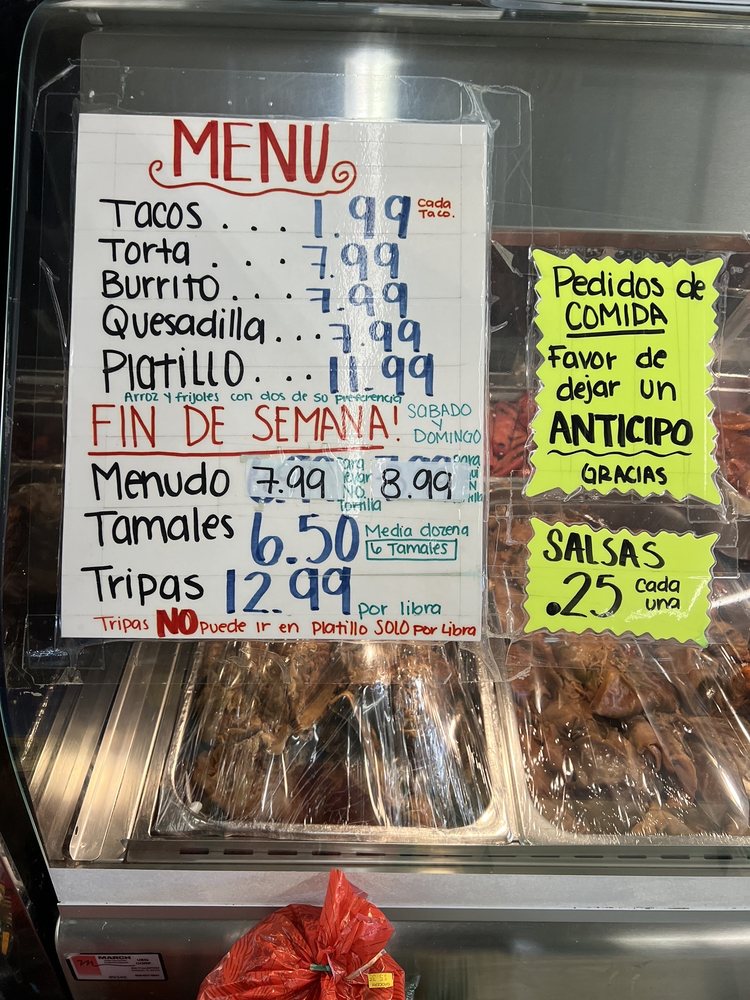 MENU
Tacos . . . 1.99 cada Taco.
Torta . . . 7.99
Burrito . . . 7.99
Quesadilla . . . 7.99
Platillo . . . 11.99
Arroz y frijoles con dos de su preferencia
FIN DE SEMANA! SABADO Y DOMINGO
Menudo 7.99 para llevar NO tortilla 8.99 para
Tamales 6.50 Media docena 6 Tamales
Tripas 12.99 por libra
Tripas NO puede ir en Platillo SOLO por Libra
Pedidos de
COMIDA
Favor de
dejar un
ANTICIPO
GRACIAS
SALSAS
.25 cada una
MARCH